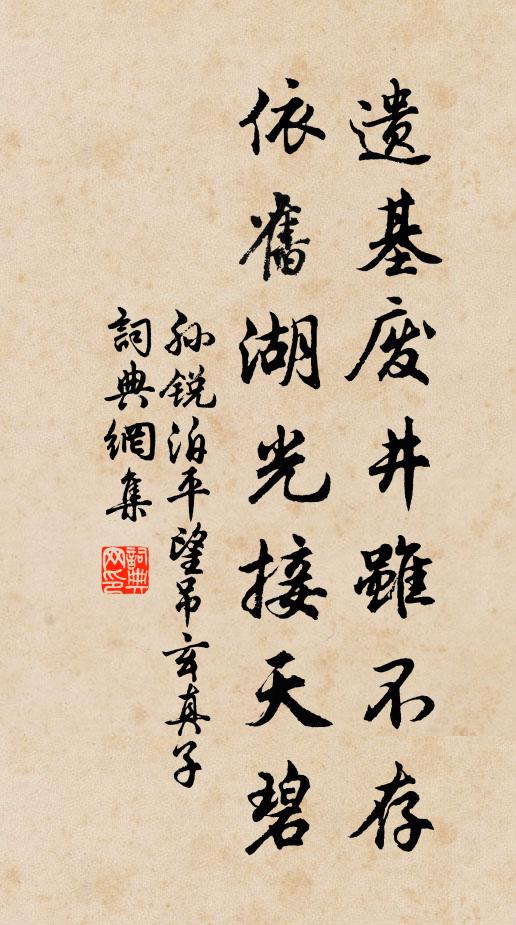 遗基废井雖不存
依舊湖光接天碧
孙锐泊平望吊玄真子
詞典網集
詞典网印